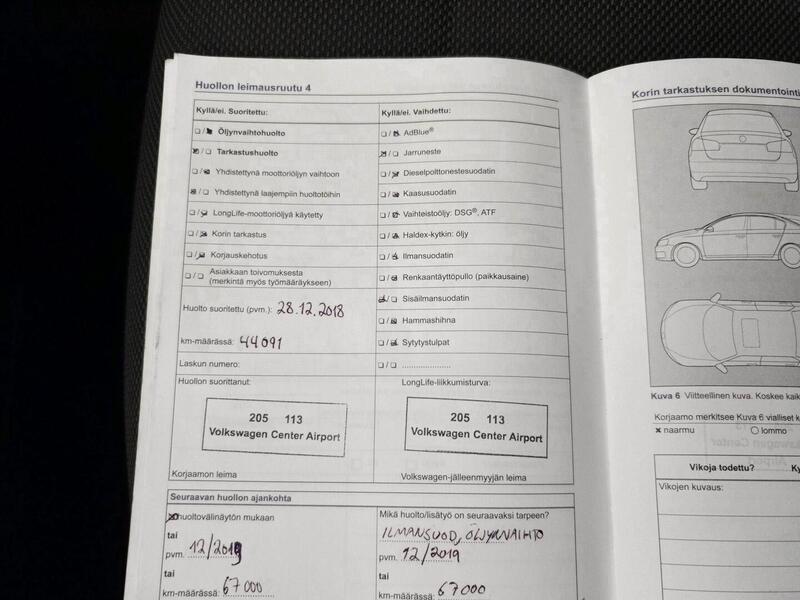 Huollon leimausruutu 4
Kyllä/ei. Suoritettu:
Öljynvaihtohuolto
Tarkastushuolto
Yhdistettynä moottoriöljyn vaihtoon
Yhdistettynä laajempiin huoltotöihin
LongLife-moottoriöljyä käytetty
Korin tarkastus
Korjauskehotus
Asiakkaan toivomuksesta
(merkintä myös työmääräykseen)
Huolto suoritettu (pvm.): 28.12.2018
km-määrässä: 44091
Laskun numero:
Kyllä/ei. Vaihdettu:
AdBlue®
Jarruneste
Dieselpolttonestesuodatin
Kaasusuodatin
Vaihteistoöljy: DSG®, ATF
Haldex-kytkin: öljy
Ilmansuodatin
Renkaantäyttöpullo (paikkausaine)
Sisäilmansuodatin
Hammashihna
Sytytystulpat
....................
Huollon suorittanut:
205 113
Volkswagen Center Airport
Korjaamon leima
LongLife-liikkumisturva:
205 113
Volkswagen Center Airport
Volkswagen-jälleenmyyjän leima
Seuraavan huollon ajankohta
huoltovälinäytön mukaan
tai
pvm. 12/2019
tai
km-määrässä: 67000
Mikä huolto/lisätyö on seuraavaksi tarpeen?
ILMANSUOD, ÖLJYNVAIHTO
pvm. 12/2019
tai
km-määrässä: 67000
Korin tarkastuksen dokumentointi
Kuva 6 Viitteellinen kuva. Koskee kaik
Korjaamo merkitsee Kuva 6 vialliset k
× naarmu
○ lommo
Vikoja todettu?
Ky
Vikojen kuvaus: